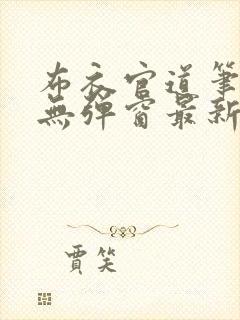 布衣官道筆
無彈窗最新
賈笑